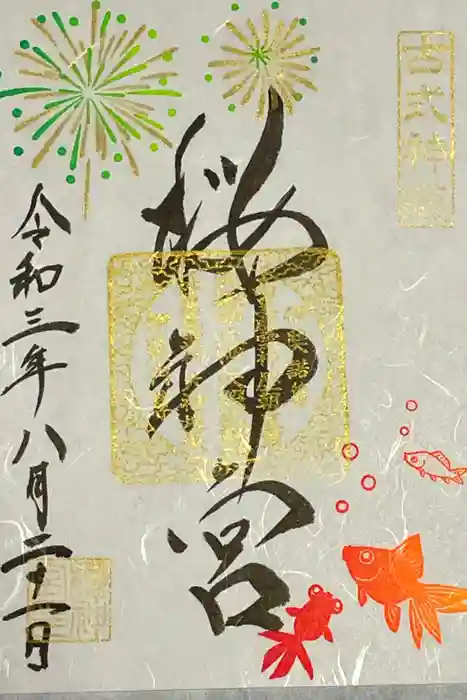 古式神道
桜神宮
令和三年八月二十一日